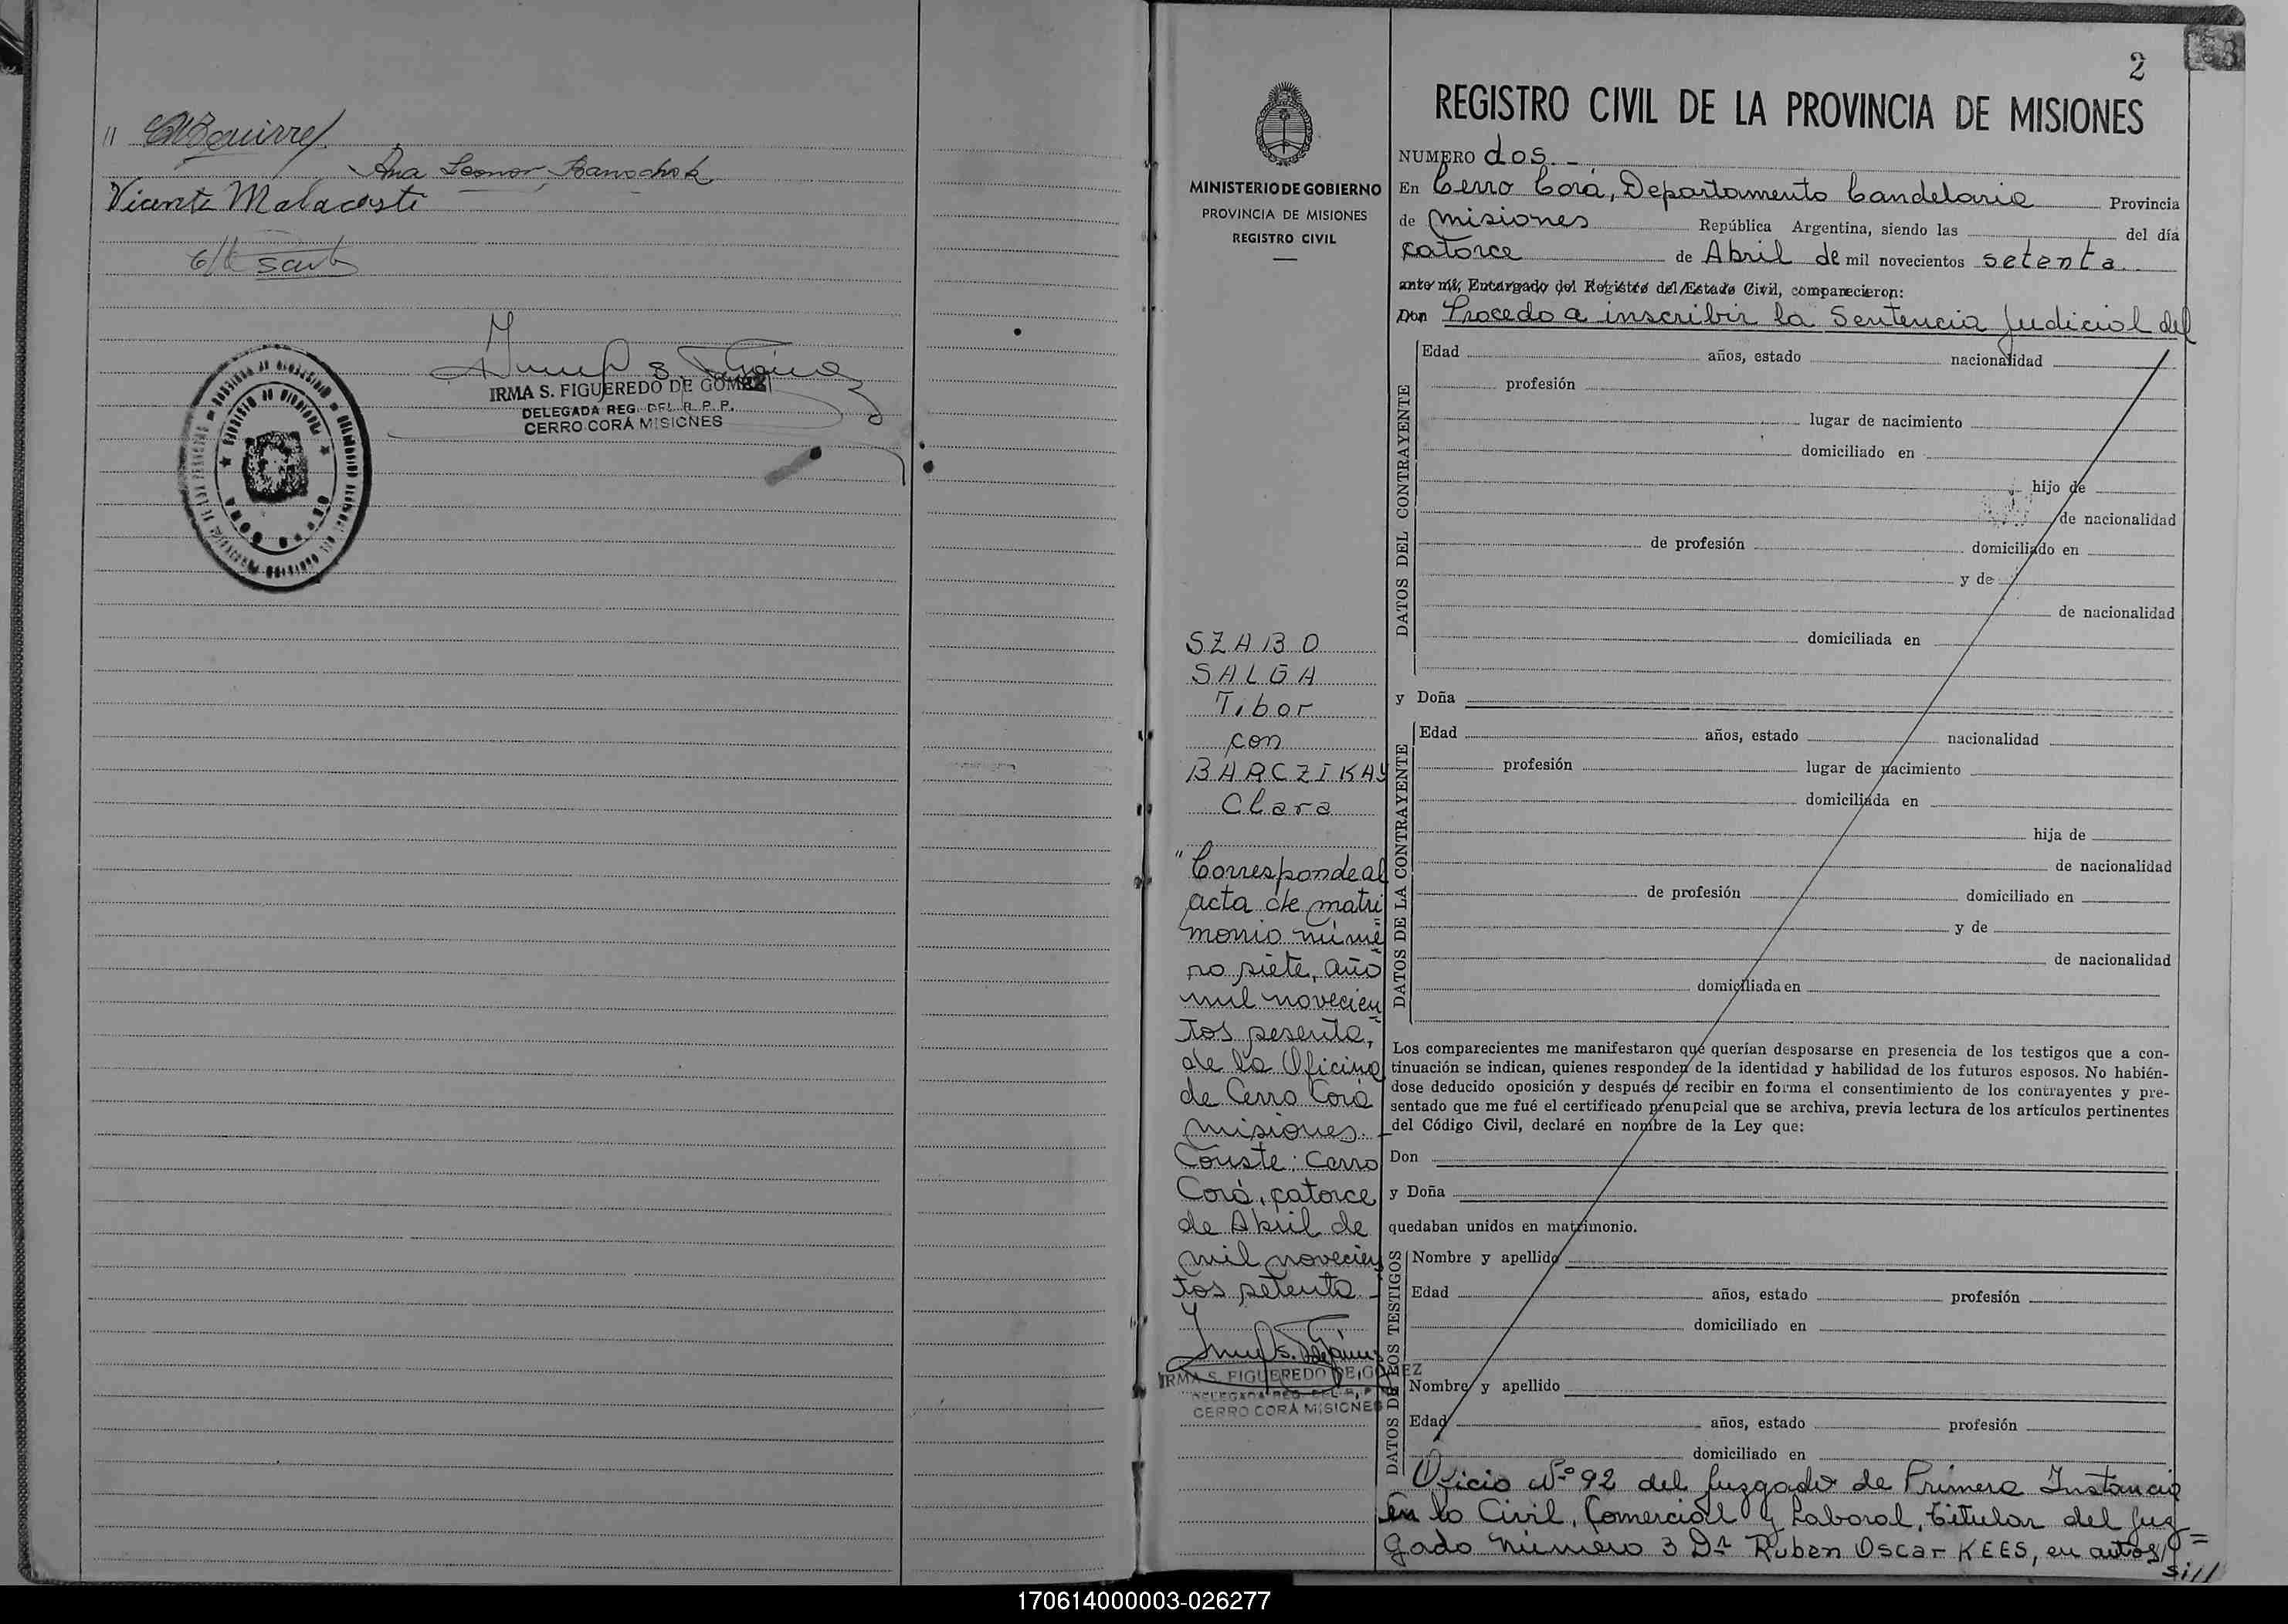 Ana Leonor
Vicente Malacoste
IRMA S. FIGUEREDO DE GOMEZ
DELEGADA REG. DEL R. P. P.
CERRO CORÁ MISIONES
CERRO CORA
2
MINISTERIO DE GOBIERNO
PROVINCIA DE MISIONES
REGISTRO CIVIL
SZABO
SALGA
Tibor
con
BARCZIKAY
Clara
"Corresponde al
acta de matri
monio núme
ro siete, año
mil novecien
tos sesenta,
de la Oficina
de Cerro Corá
misiones.-
Conste: Cerro
Corá, catorce
de Abril de
mil novecien
tos setenta.-
IRMA S. FIGUEREDO DE GOMEZ
DELEGADA REG. DEL R. P. P.
CERRO CORÁ MISIONES
REGISTRO CIVIL DE LA PROVINCIA DE MISIONES
NUMERO dos.-
En Cerro Corá, Departamento Candelaria Provincia
de misiones República Argentina, siendo las del día
catorce de Abril de mil novecientos setenta
ante mí, Encargado del Registro del Estado Civil, comparecieron:
Don Procedo a inscribir la Sentencia Judicial del
DATOS DEL CONTRAYENTE
Edad años, estado nacionalidad
profesión
lugar de nacimiento
domiciliado en
hijo de
de nacionalidad
de profesión domiciliado en
y de
de nacionalidad
domiciliada en
y Doña
DATOS DE LA CONTRAYENTE
Edad años, estado nacionalidad
profesión lugar de nacimiento
domiciliada en
hija de
de nacionalidad
de profesión domiciliado en
y de
de nacionalidad
domiciliada en
Los comparecientes me manifestaron que querían desposarse en presencia de los testigos que a con-
tinuación se indican, quienes responden de la identidad y habilidad de los futuros esposos. No habién-
dose deducido oposición y después de recibir en forma el consentimiento de los contrayentes y pre-
sentado que me fué el certificado prenupcial que se archiva, previa lectura de los artículos pertinentes
del Código Civil, declaré en nombre de la Ley que:
Don
y Doña
quedaban unidos en matrimonio.
DATOS DE LOS TESTIGOS
Nombre y apellido
Edad años, estado profesión
domiciliado en
Nombre y apellido
Edad años, estado profesión
domiciliado en
Oficio Nº 92 del Juzgado de Primera Instancia
en lo Civil, Comercial y Laboral, titular del Juz=
gado número 3 Dr Ruben Oscar KEES, en autos
170614000003-026277